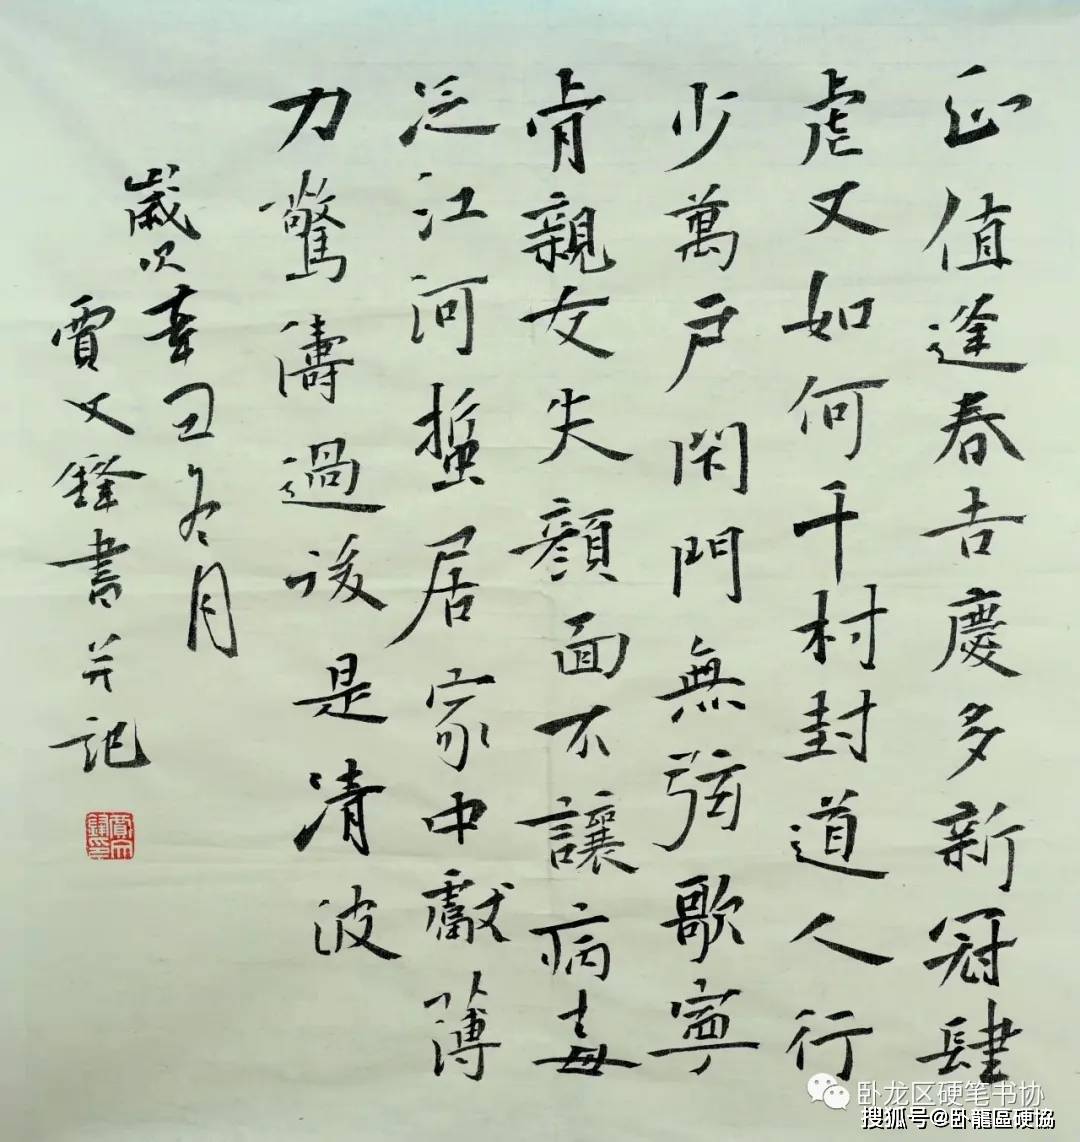 正值逢春吉慶多新冠肆
虐又如何千村封道人行
少萬户闭門無弦歌寧
肯親友失顔面不讓病毒
泛江河蛰居家中獻薄
力驚濤過後是清波
歲次辛丑冬月
賈文鋒書并記
卧龙区硬笔书协
搜狐号@卧龍區硬協